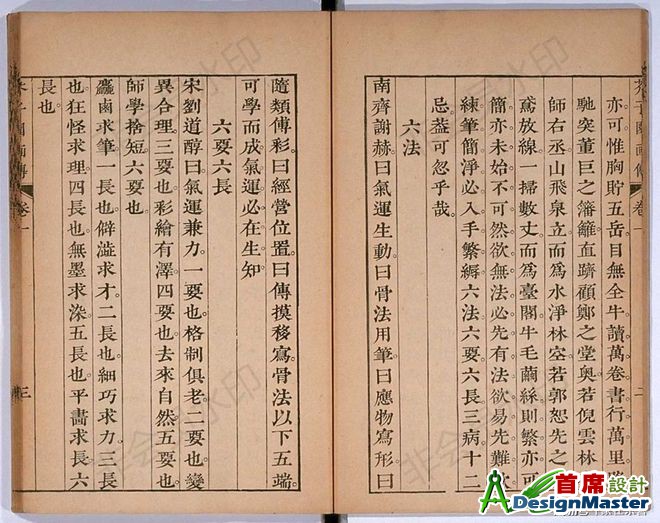 芥子園畫傳 卷一 二
亦可惟胸貯五岳目無全牛讀萬卷書行萬里
馳突董巨之籓籬直躋顧鄭之堂奧若倪雲林
師右丞山飛泉立而為水淨林空若郭恕先之
鳶放線一掃數丈而為臺閣牛毛繭絲則繁亦可
簡亦未始不可然欲無法必先有法欲易先難欲
練筆簡淨必入手繁縟六法六要六長三病十二
忌。葢可忽乎哉。
六法
南齊謝赫曰氣運生動曰骨法用筆曰應物寫形曰
隨類傅彩曰經營位置曰傳摸移寫骨法以下五端
可學而成氣運必在生知
六要六長
宋劉道醇曰氣運兼力一要也格制俱老二要也變
異合理三要也彩繪有澤四要也去來自然五要也
師學捨短六要也
麤鹵求筆一長也僻澁求才二長也細巧求力三長
也狂怪求理四長也無墨求染五長也平畫求長六
長也
芥子園畫傳 卷一 三
非会员水印
首席設計
ADesignMaster